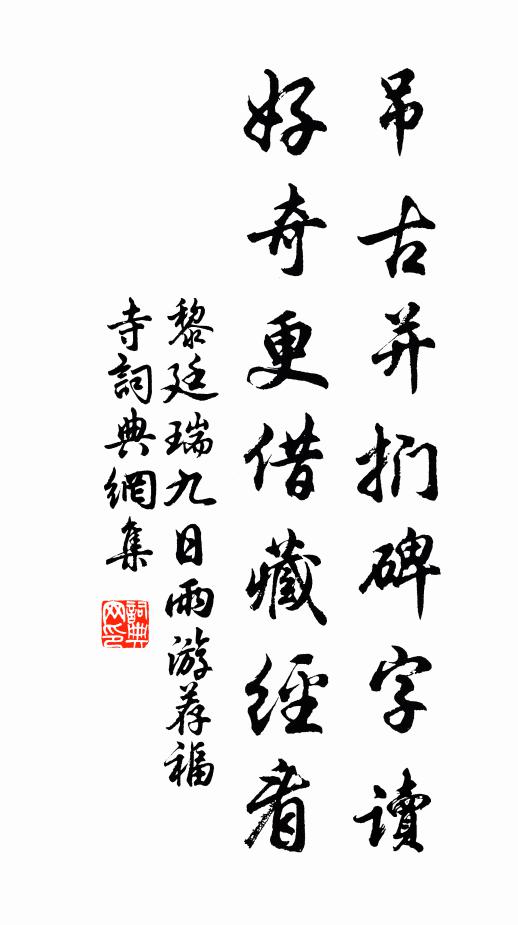 吊古并捫碑字讀
好奇更借藏經看
黎廷瑞九日雨游荐福
寺詞典網集
詞典网印